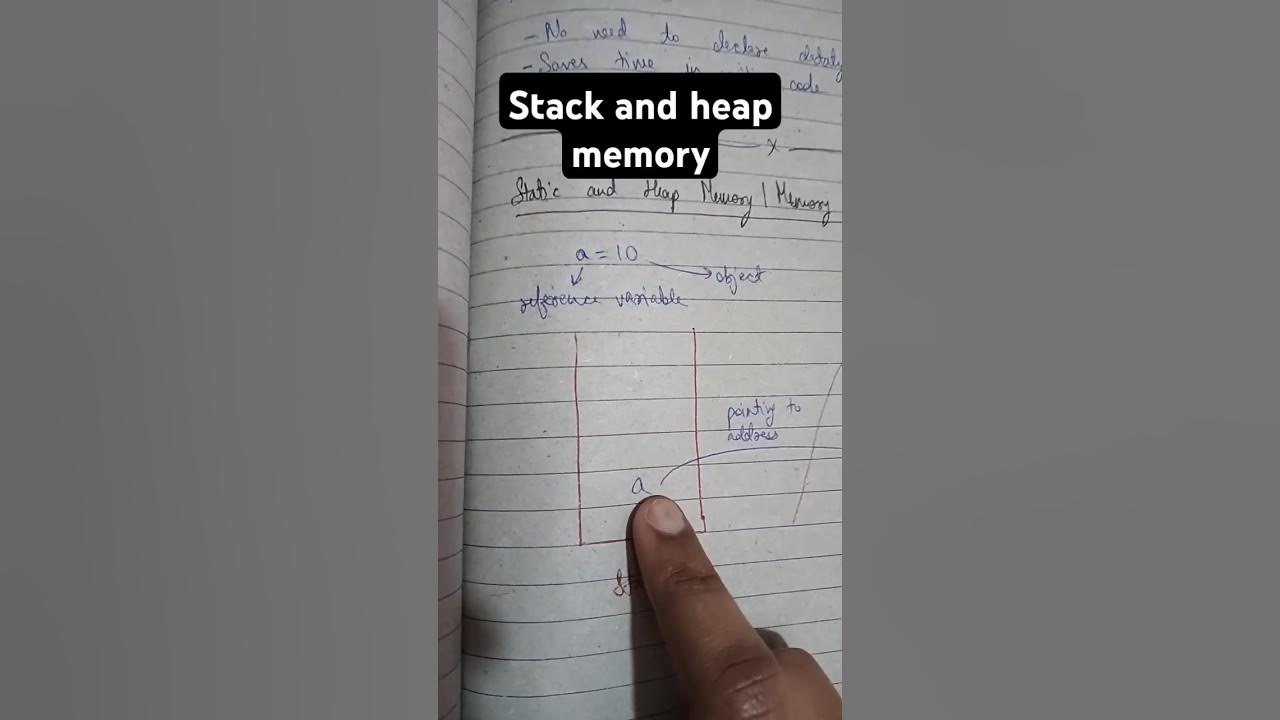 - No need to declare dataty
- Saves time in code
Stack and heap
memory
x
Static and Heap Memory | Memory
a = 10
object
reference variable
pointing to
address
a